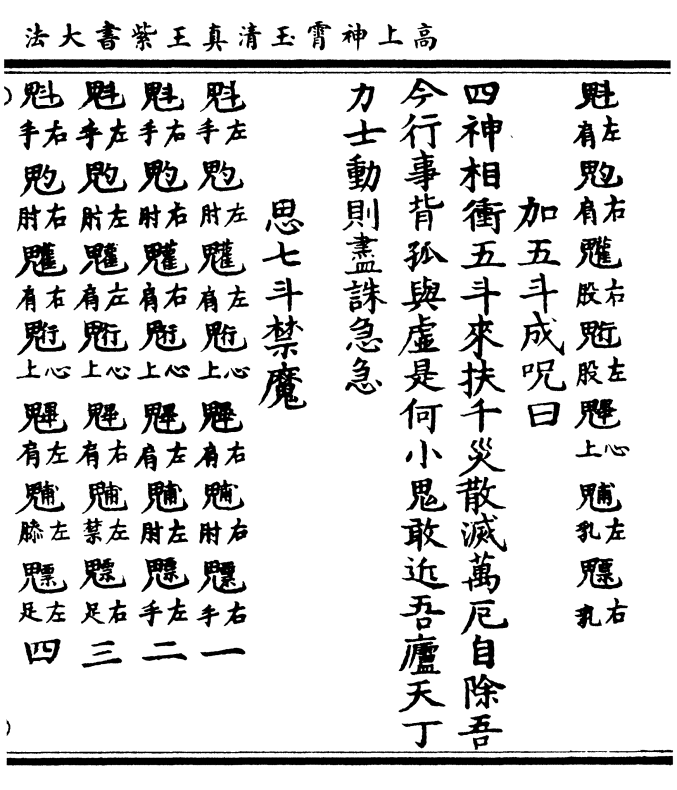 高上神霄玉清真王紫書大法
魁左肩𩲃右肩䰱右股䰢左股魓心上𩳐左乳魒右乳
加五斗成呪曰
四神相衝五斗來扶千災散滅萬厄自除吾
今行事背孤與虛是何小鬼敢近吾廬天丁
力士動則盡誅急急
思七斗禁魔
魁左手𩲃左肘䰱左肩䰢心上魓右肩𩳐右肘魒右手一
魁右手𩲃右肘䰱右肩䰢心上魓左肩𩳐左肘魒左手二
魁左手𩲃左肘䰱左肩䰢心上魓右肩𩳐左禁魒右足三
魁右手𩲃右肘䰱右肩䰢心上魓左肩𩳐左膝魒左足四